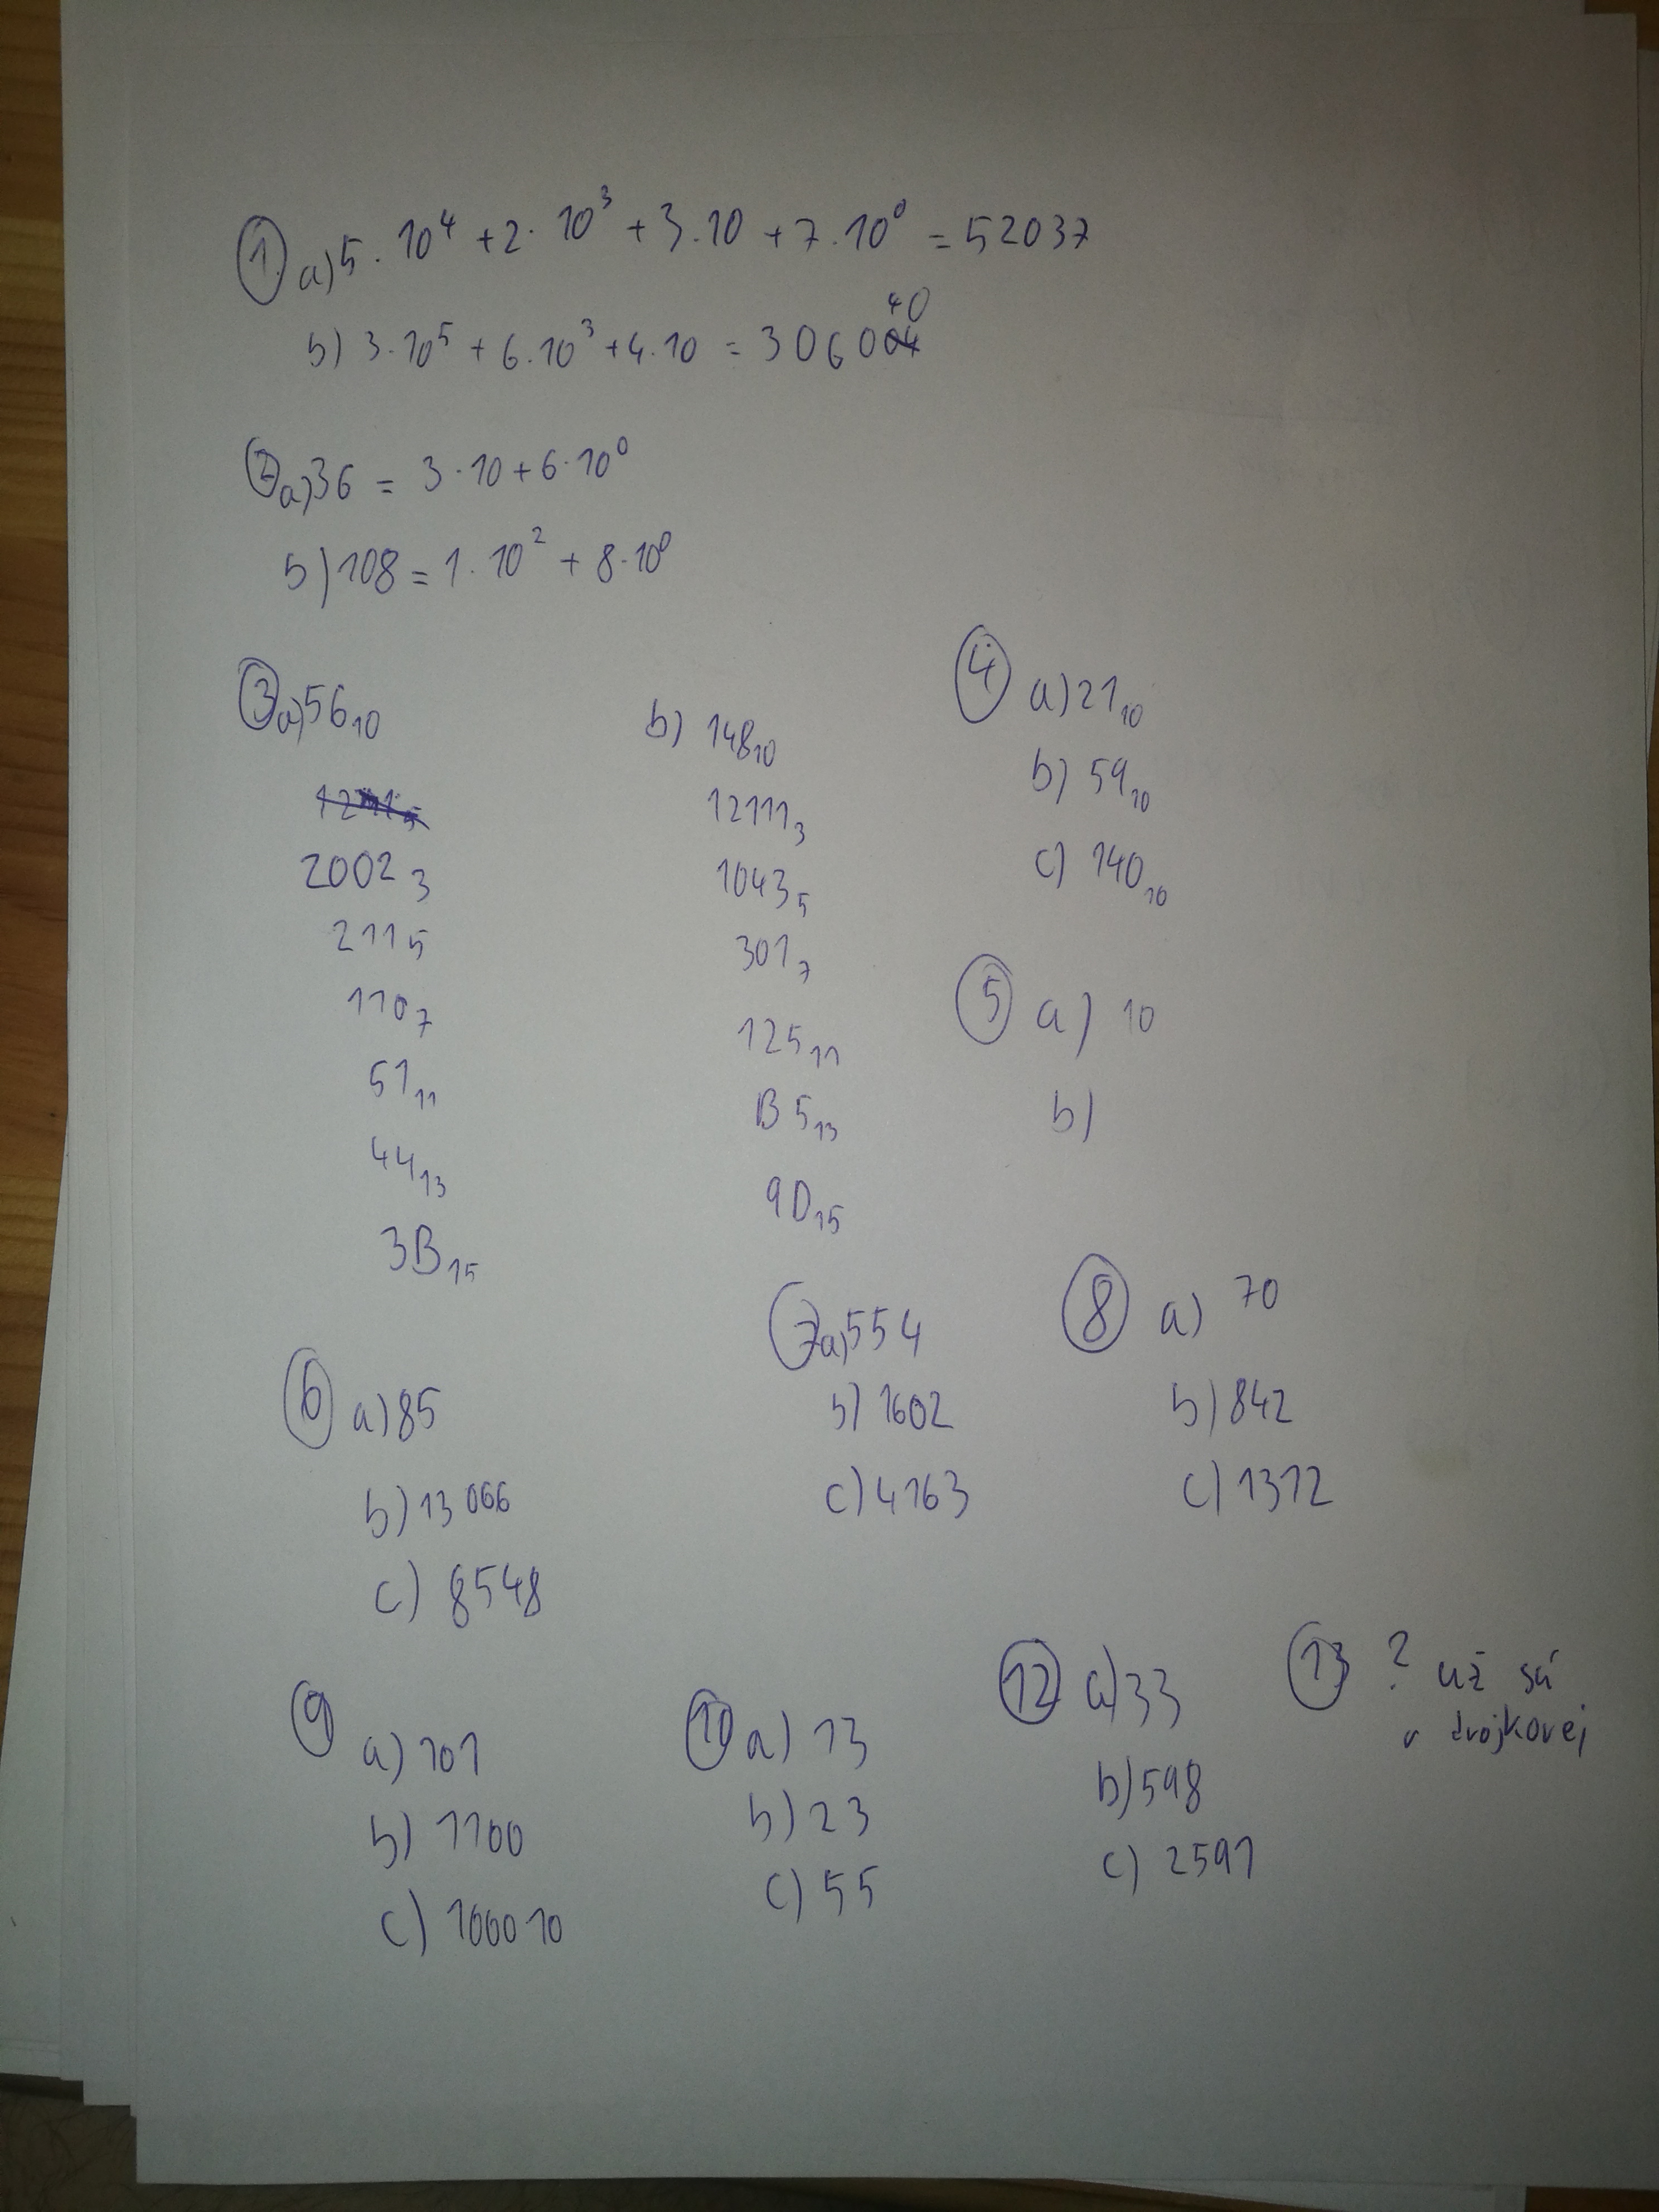 1. a) 5 · 10⁴ + 2 · 10³ + 3 . 10 + 7 . 10⁰ = 52037
b) 3 · 10⁵ + 6 . 10³ + 4 . 10 = 306040
2 a) 36 = 3 · 10 + 6 · 10⁰
b) 108 = 1 · 10² + 8 · 10⁰
3 a) 56₁₀
2002₃
211₅
110₇
51₁₁
44₁₃
3B₁₅
b) 148₁₀
12111₃
1043₅
301₇
125₁₁
B5₁₃
9D₁₅
4 a) 21₁₀
b) 59₁₀
c) 140₁₀
5 a) 10
b)
6 a) 85
b) 13066
c) 8548
7 a) 554
b) 1602
c) 4163
8 a) 70
b) 842
c) 1312
9 a) 101
b) 1100
c) 100010
10 a) 13
b) 23
c) 55
12 a) 33
b) 598
c) 2591
13 ? už sú
v dvojkovej